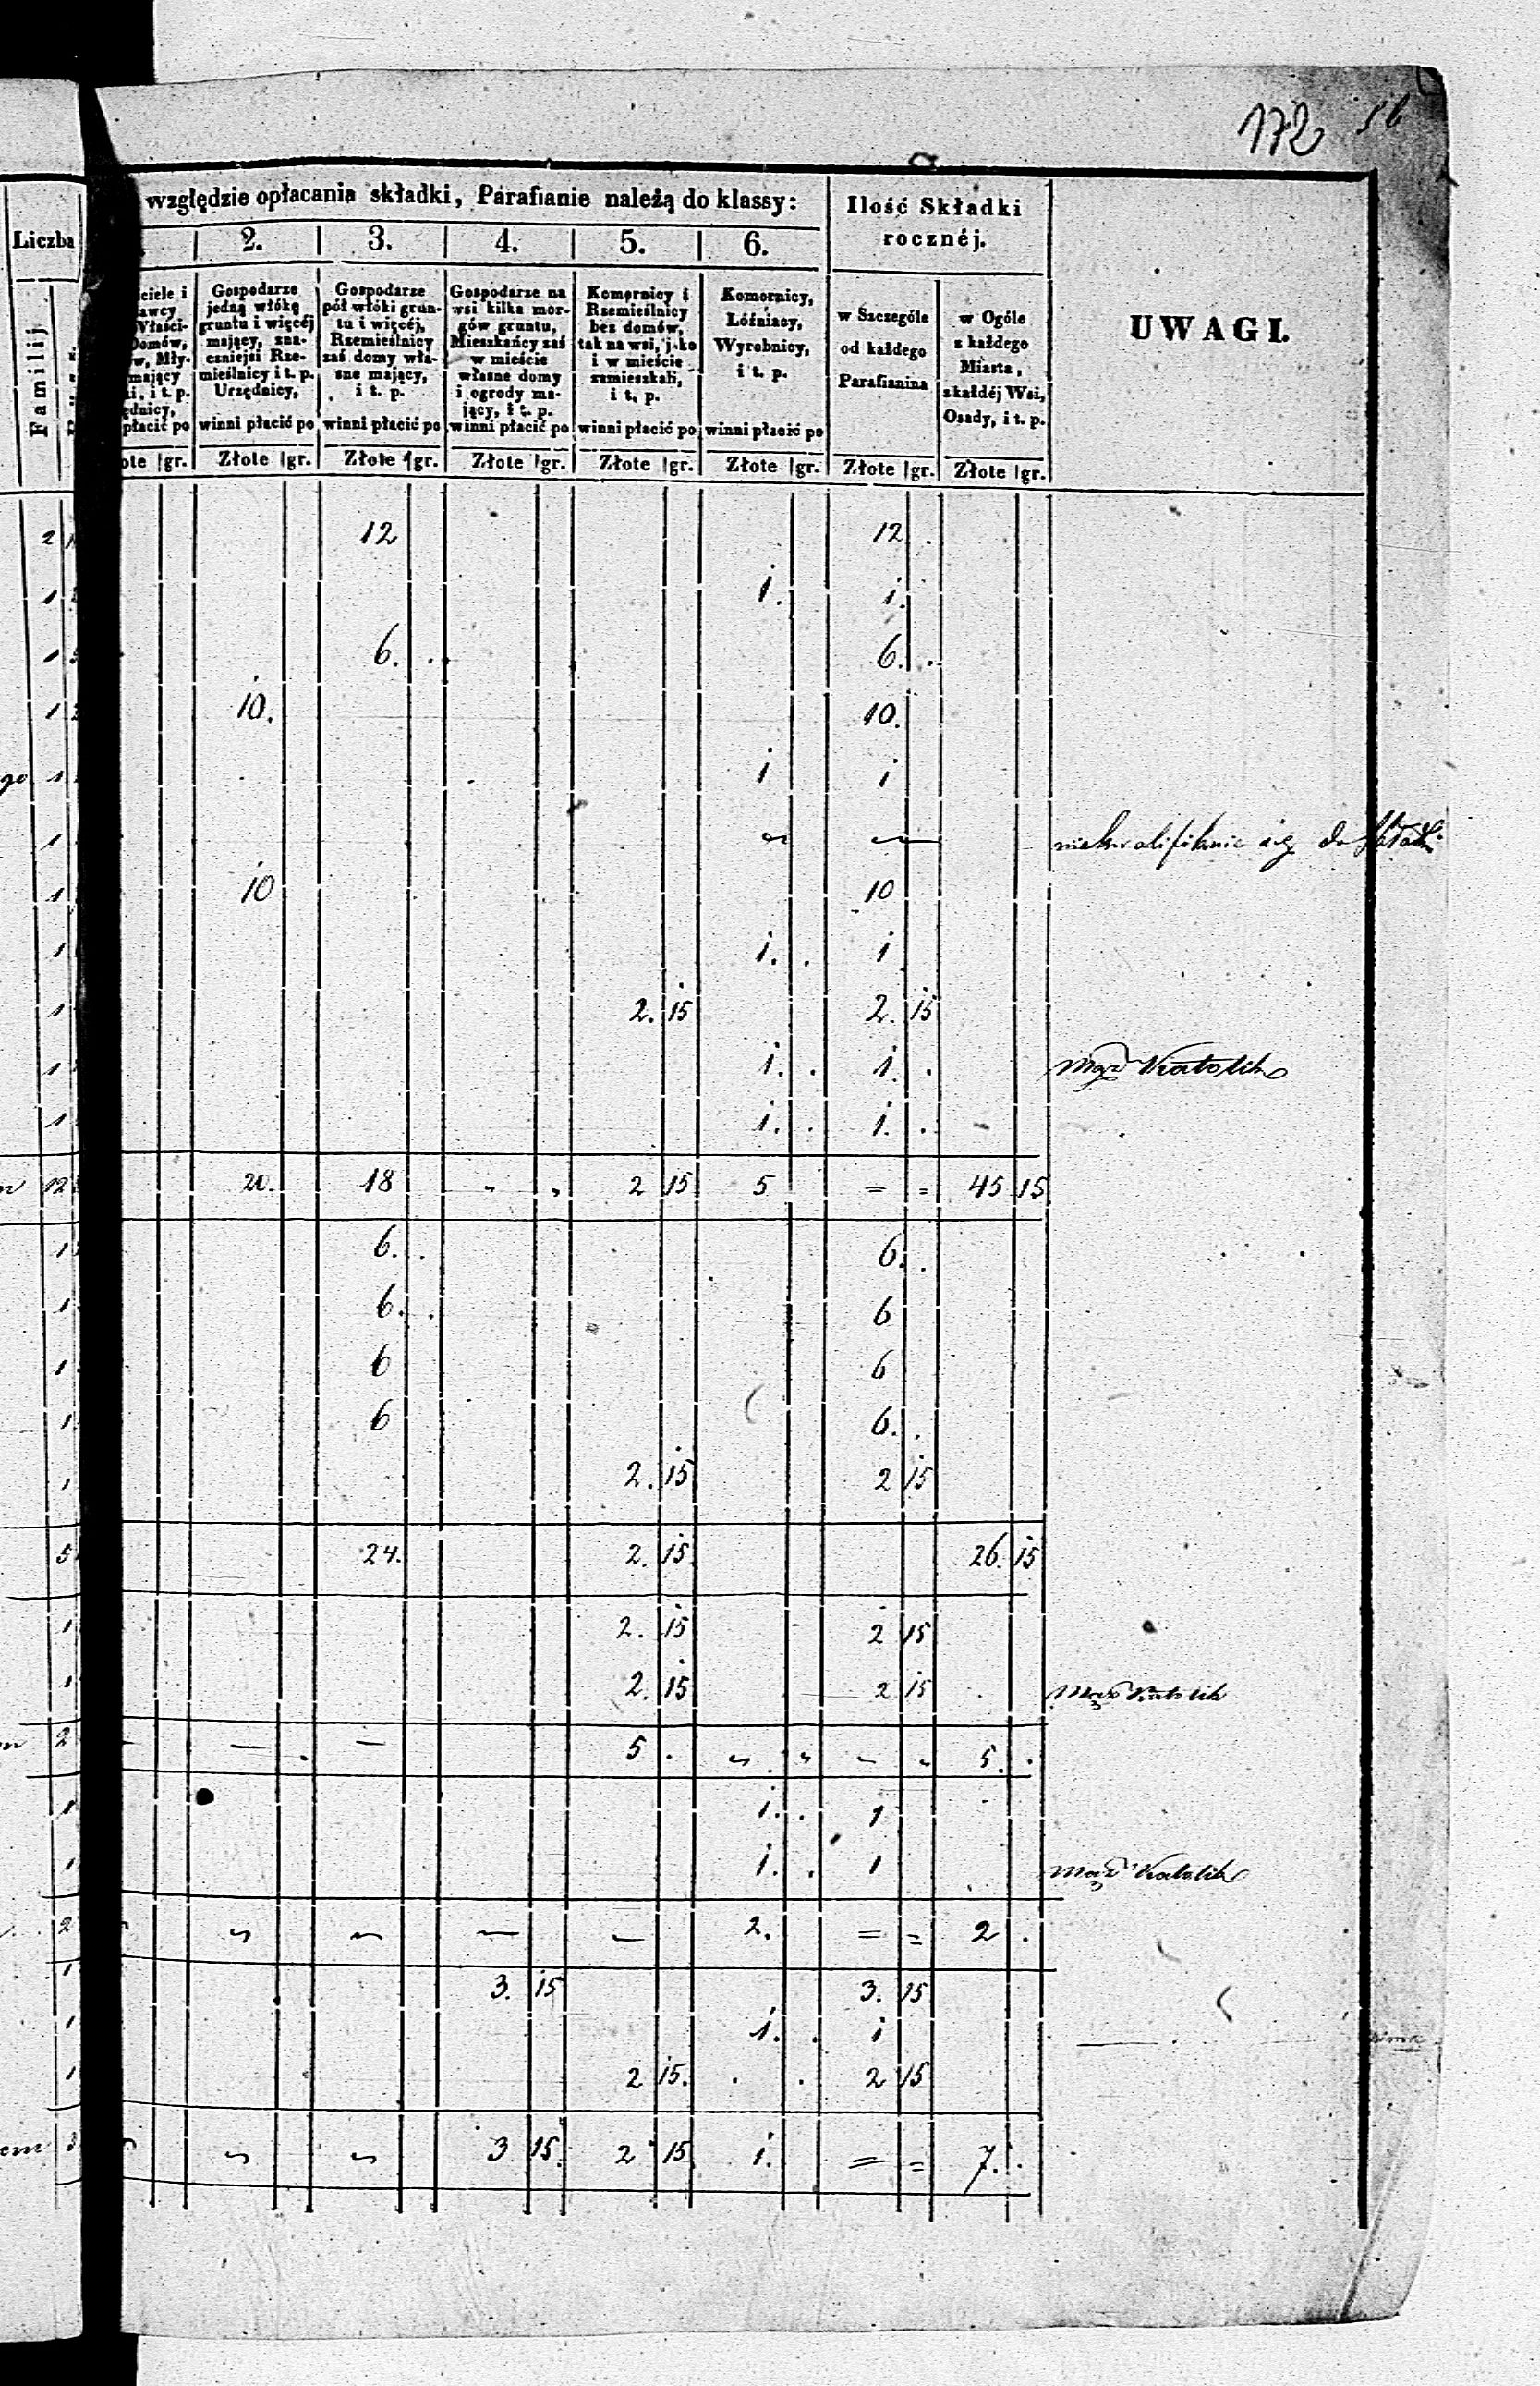 172 56
względzie opłacania składki, Parafianie należą do klassy:
Ilość Składki
rocznéj.
UWAGI.
Liczba
Familij
2. 3. 4. 5. 6.
ciele i
awcy
Właści-
Domów,
w, Mły-
mający
i, i t. p.
ędnicy,
płacić po
Gospodarze
jedną włókę
gruntu i więcéj
mający, zna-
czniejsi Rze-
mieślnicy i t. p.
Urzędnicy,
winni płacić po
Gospodarze
pół włóki grun-
tu i więcéj,
Rzemieślnicy
zaś domy wła-
sne mający,
i t. p.
winni płacić po
Gospodarze na
wsi kilka mor-
gów gruntu,
Mieszkańcy zaś
w mieście
własne domy
i ogrody ma-
jący, i t. p.
winni płacić po
Komornicy i
Rzemieślnicy
bez domów,
tak na wsi, jako
i w mieście
zamieszkali,
i t. p.
winni płacić po
Komornicy,
Lóźniacy,
Wyrobnicy,
i t. p.
winni płacić po
w Szczególe
od każdego
Parafianina
w Ogóle
z każdego
Miasta,
z każdéj Wsi,
Osady, i t. p.
ote gr. Złote gr. Złote gr. Złote gr. Złote gr. Złote gr. Złote gr. Złote gr.
2 12 12 .
1 1. 1.
1 6. . 6. .
1 10. 10.
go 1 1 1
1 – – niekwalifikuie się do składki
1 10 10
1 1. . 1
1 2. 15 2. 15
1 1. . 1. . Mąż Katolik
1 1. . 1. .
12 20. 18 „ „ 2 15 5 = = 45 15
1 6. . 6. .
1 6. . 6
1 6 6
1 6 6. .
1 2. 15 2 15
5 24. 2. 15 26. 15
1 2. 15 2 15
1 2. 15 2 15 Mąż Katolik
2 – – – 5 . „ „ – „ 5. .
1 1. . 1
1 1. . 1 Mąż Katolik
2 „ „ – – 2. = = 2 .
1 3. 15 3. 15
1 1. . 1
1 2 15. . . 2 15
em 3 „ „ 3 15. 2 15 1. = = 7. .